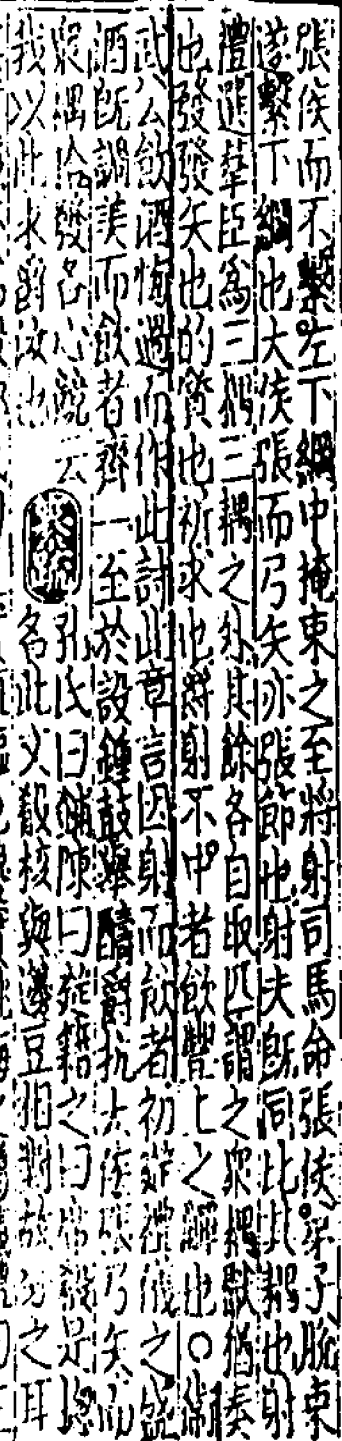 張侯而不繫左下綱中掩束之至將射司馬命張侯弟子脫束
遂繫下綱也大侯張而弓矢亦張節也射夫旣同比其耦也射
禮選羣臣爲三耦三耦之外其餘各自取匹謂之衆耦獻猶奏
也發發矢也的質也祈求也爵射不中者飲豐上之觶也○衛
武公飲酒悔過而作此詩此章言因射而飲者初筵禮儀之盛
酒旣調美而飲者齊一至於設鍾鼓舉醻爵抗大侯張弓矢而
衆耦拾發各心競云
我以此求爵汝也
孔氏曰鋪陳曰筵藉之曰席殽是總
名此文殽核與籩豆相對故分之耳